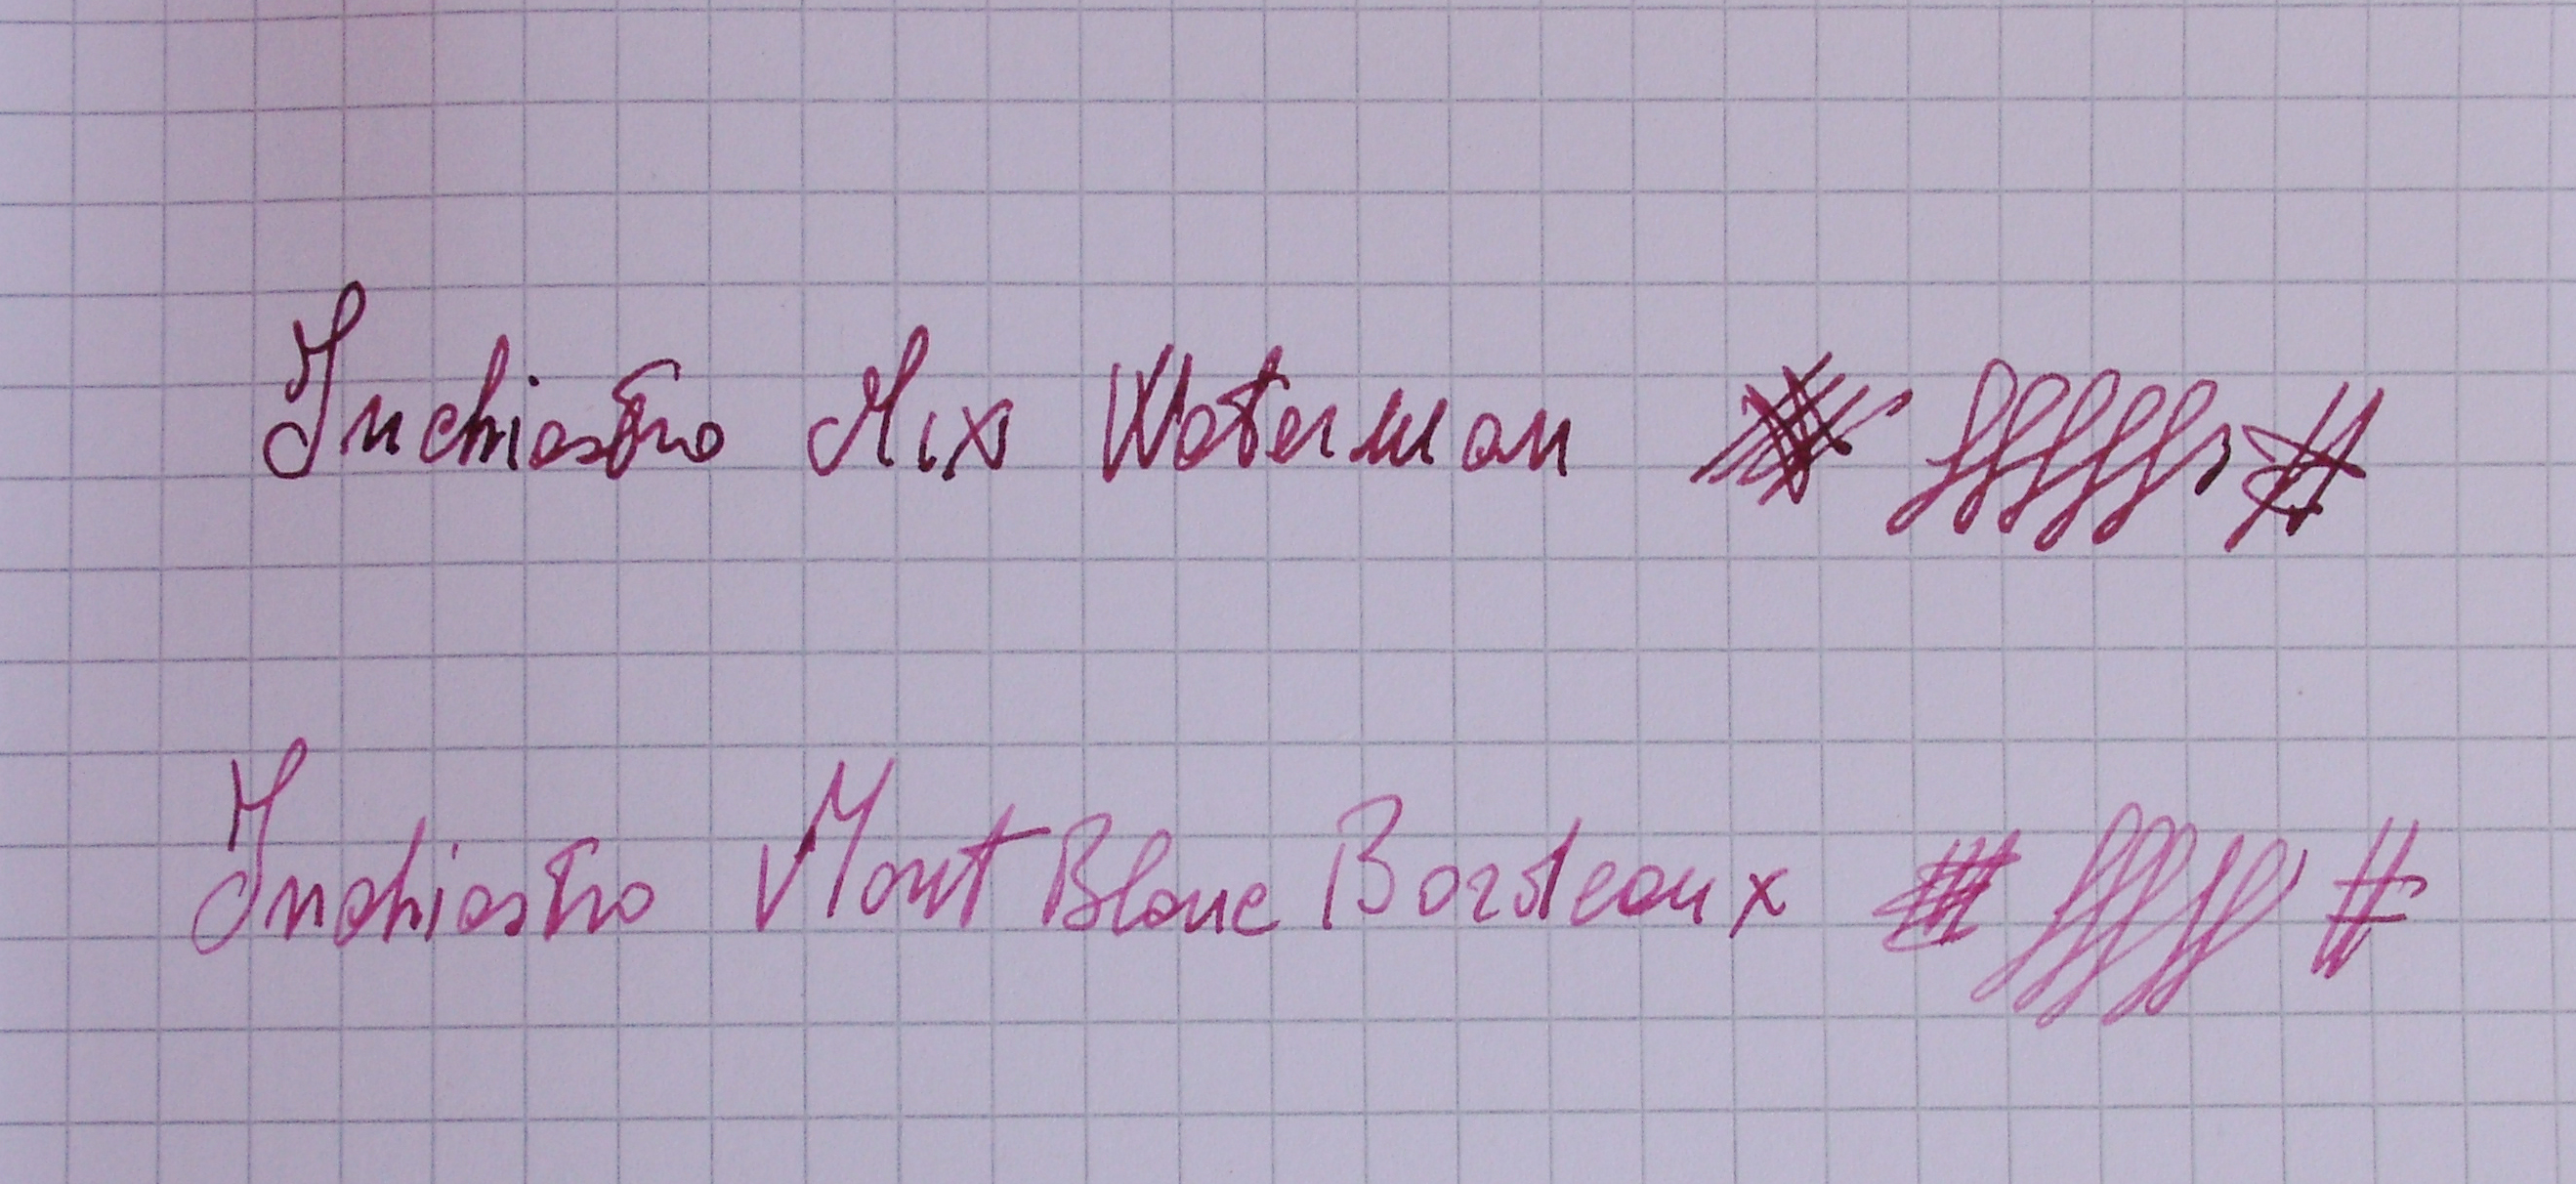 Inchiostro Mix Waterman #
Inchiostro Mont Blanc Bordeaux #